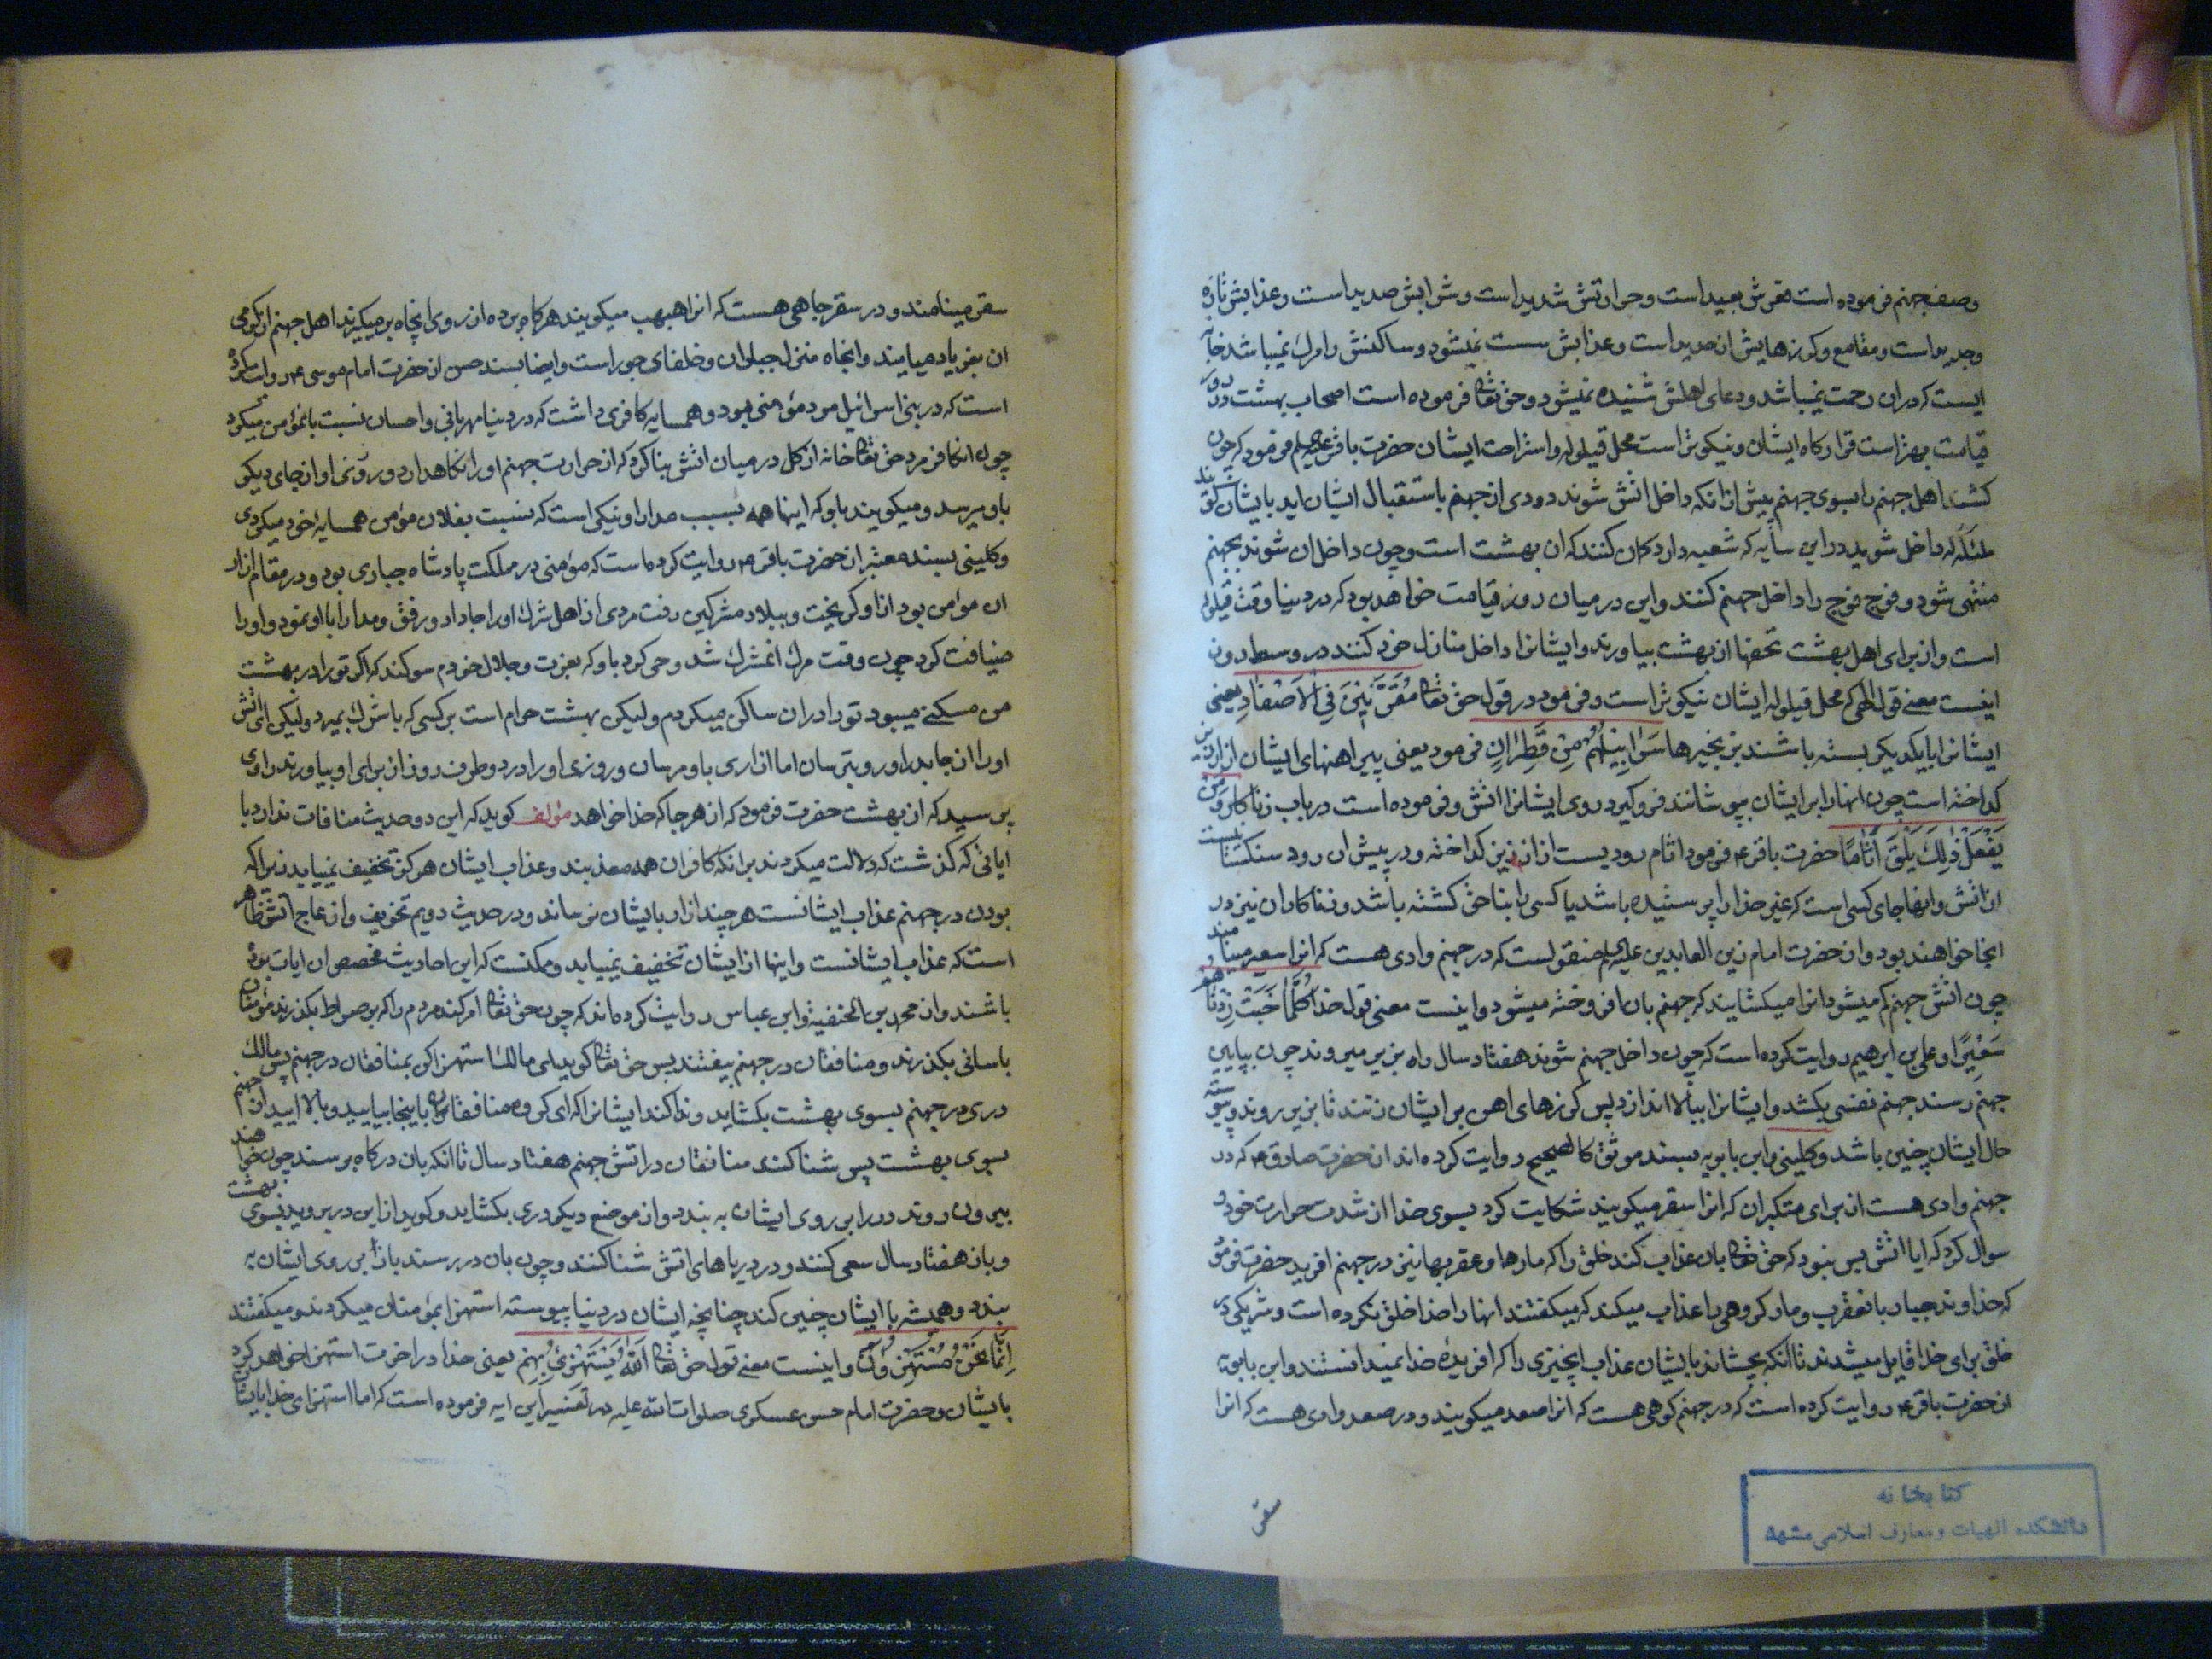 وصف جهنم فرموده است قعرش بعید است و حرارتش شدید است و شرابش صدید است و عذابش تازه
و جدید است و مقامع و گرزهایش از حدید است و عذابش سست نمیشود و ساکنش را مرك نمیباشد خانه
ایست که در آن رحمت نمیباشد و دعای اهلش شنیده نمیشود و حق تعالی فرموده است اصحاب بهشت در روز
قیامت بهتر است قرارگاه ایشان و نیکوتر است محل قیلوله و استراحت ایشان حضرت باقر علیه السلم فرمود که چون
کشند اهل جهنم را بسوی جهنم پیش از انکه داخل اتش شوند دودی از جهنم باستقبال ایشان اید بایشان گویند
که داخل شوید در این سایه که شعبه دارد کمان کنند که ان بهشت است و چون داخل ان شوند بجهنم
منتهی شود و فوج فوج را داخل جهنم کنند و این در میان روز قیامت خواهد بود که در دنیا وقت قیلوله
است و از برای اهل بهشت تحفها از بهشت بیاورند و ایشانرا داخل منازل خود کنند در وسط روز
اینست معنی قول الهی که محل قیلوله ایشان نیکوتر است و فرمود در قول حق تعالی مُقَرَّنِینَ فِی الْاَصْفَادِ یعنی
ایشانرا بایکدیکر بسته باشند بزنجیرها سَرَابِیلُهُمْ مِنْ قَطِرَانٍ فرمود یعنی پیراهنهای ایشان از
کداخته است چون انها را بر ایشان بپوشانند فرو گیرد روی ایشانرا اتش و فرموده است در باب زناکار وَمَنْ
یَفْعَلْ ذٰلِكَ یَلْقَ اَثَامًا حضرت باقر ع فرمود اثام رودیست از کداخته و در پیش ان رود سنکستانیست
از اتش و انها جای کسی است که غیر خدا را پرستیده باشد یا کسی را بناحق کشته باشد و زناکاران نیز در
انجا خواهند بود و از حضرت امام زین العابدین علیه السلم منقولست که در جهنم وادی هست که انرا سعیر مینامند
چون اتش جهنم کم میشود انرا میکشایند که جهنم بان افروخته میشود و اینست معنی قول خدا کُلَّمَا خَبَتْ زِدْنَاهُمْ
سَعِیرًا و علی بن ابرهیم روایت کرده است که چون داخل جهنم شوند هفتاد سال راه بزیر میروند چون بپایین
جهنم رسند جهنم نفسی بکشد و ایشانرا ببالا اندازد پس کرزهای اهن بر ایشان زنند تا بزیر روند و پیوسته
حال ایشان چنین باشد و کلینی و ابن بابویه بسند موثق کالصحیح روایت کرده اند از حضرت صادق ع که در
جهنم وادی هست از برای متکبران که انرا سقر میکویند شکایت کرد بسوی خدا از شدت حرارت خود و
سوال کرد که ایا اتش بس نبود که حق تعالی بان عذاب کند خلق را که مارها و عقربها نیز در جهنم افرید حضرت فرمود
که خداوند جبار با عقرب و مار کروهی را عذاب میکند که میکفتند انها را خدا خلق نکرده است و شریکی در
خلق برای خدا قایل میشدند تا انکه بچشاند بایشان عذاب انچیزی را که افریدۀ خدا نمیدانستند و ابن بابویه
از حضرت باقر ع روایت کرده است که در جهنم کوهی هست که انرا صعد میکویند و در صعد وادی هست که انرا
سقر
کتابخانه
دانشکده الهیات و معارف اسلامی مشهد
سقر مینامند و در سقر چاهی هست که انرا هبهب میکویند هرکاه پرده از روی انچاه برمیکیرند اهل جهنم از کرمی
ان بفریاد میایند و انچاه منزل جباران و خلفای جور است و ایضا بسند حسن از حضرت امام موسی ع روایت کرده
است که در بنی اسرائیل مرد مؤمنی بود و همسایه کافری داشت که در دنیا مهربانی و احسان نسبت بانمؤمن میکرد
چون انکافر مرد حق تعالی خانه از کل در میان اتش بنا کرد که از حرارت جهنم او را نکاهدارد و روزی او از جای دیکر
باو میرسد و میکویند باو که اینها همه بسبب مدارا و نیکی است که بنسبت بفلان مؤمن همسایۀ خود میکردی
و کلینی بسند معتبر از حضرت باقر ع روایت کرده است که مؤمنی در مملکت پادشاه جباری بود و در مقام ازار
ان مؤمن بود از او کریخت و ببلاد مشرکین رفت مردی از اهل شرك او را جا داد و رفق و مدارا با او نمود و او را
ضیافت کرد چون وقت مرك انمشرك شد وحی کرد باو که بعزت و جلال خودم سوکند که اکر تو را در بهشت
من مسکنی میبود تو را در ان ساکن میکردم ولیکن بهشت حرام است بر کسی که با شرك بمیرد ولیکن ای اتش
او را از جا بدراور و بترسان اما ازاری باو مرسان و روزی او را در دو طرف روز از برای او بیاورند راوی
پرسید که از بهشت حضرت فرمود که از هر جا که خدا خواهد مؤلف کوید که این دو حدیث منافات ندارد با
ایاتی که کذشت که دلالت میکردند بر انکه کافران همه معذبند و عذاب ایشان هرکز تخفیف نمییابد زیرا که
بودن در جهنم عذاب ایشانست هر چند ازار بایشان نرساند و در حدیث دویم تخویف و ازعاج اتش ظاهر
است که عذاب ایشانست و اینها از ایشان تخفیف نمییابد و ممکنست که این احادیث مخصص ان ایات بوده
باشند و از محمد بن الحنفیة و ابن عباس روایت کرده اند که چون حق تعالی امر کند مردم را که بر صراط بکذرند مؤمنان
باسانی بکذرند و منافقان در جهنم بیفتند پس حق تعالی کوید ای مالك استهزا کن بمنافقان در جهنم پس مالك
دری در جهنم بسوی بهشت بکشاید و ندا کند ایشانرا که ای کروه منافقان باینجا بیایید و بالا ایید از جهنم
بسوی بهشت پس شنا کنند منافقان در اتش جهنم هفتاد سال تا انکه بان درکاه برسند چون خواهند
بیرون روند در را بر روی ایشان به بندد و از موضع دیکر دری بکشاید و کوید از این در بروید بسوی بهشت
و باز هفتاد سال سعی کنند و در دریاهای اتش شنا کنند و چون بان در برسند باز بر روی ایشان به
بندد و همیشه با ایشان چنین کند چنانچه ایشان در دنیا پیوسته استهزا بمؤمنان میکردند و میکفتند
اِنَّمَا نَحْنُ مُسْتَهْزِؤُنَ و اینست معنی قول حق تعالی اَللّٰهُ یَسْتَهْزِئُ بِهِمْ یعنی خدا در اخرت استهزا خواهد کرد
بایشان و حضرت امام حسن عسکری صلوات الله علیه در تفسیر این ایه فرموده است که اما استهزای خدا بایشان